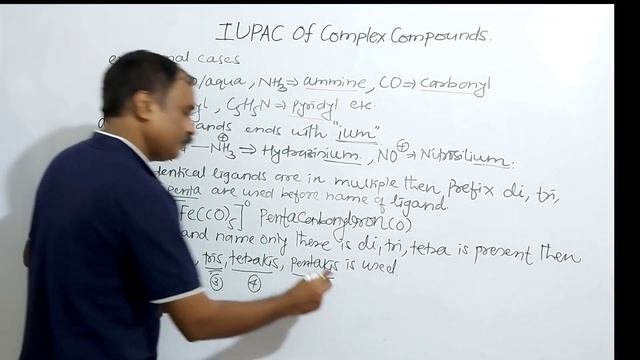 IUPAC Of Complex Compounds.
nal cases
o/aqua, NH3⇒ ammine, CO⇒ Carbonyl
yl, C5H5N⇒ pyridyl etc.
ands ends with "ium"
- NH3⊕ ⇒ Hydrazinium, NO⊕→ Nitrosilium.
dentical ligands are in multiple then prefix di, tri,
penta are used before name of ligand.
[Fe(CO)5]° PentaCarbonyl iron(0)
and name only there is di, tri, tetra is present then
, tris, tetrakis, pentakis is used
③ ④